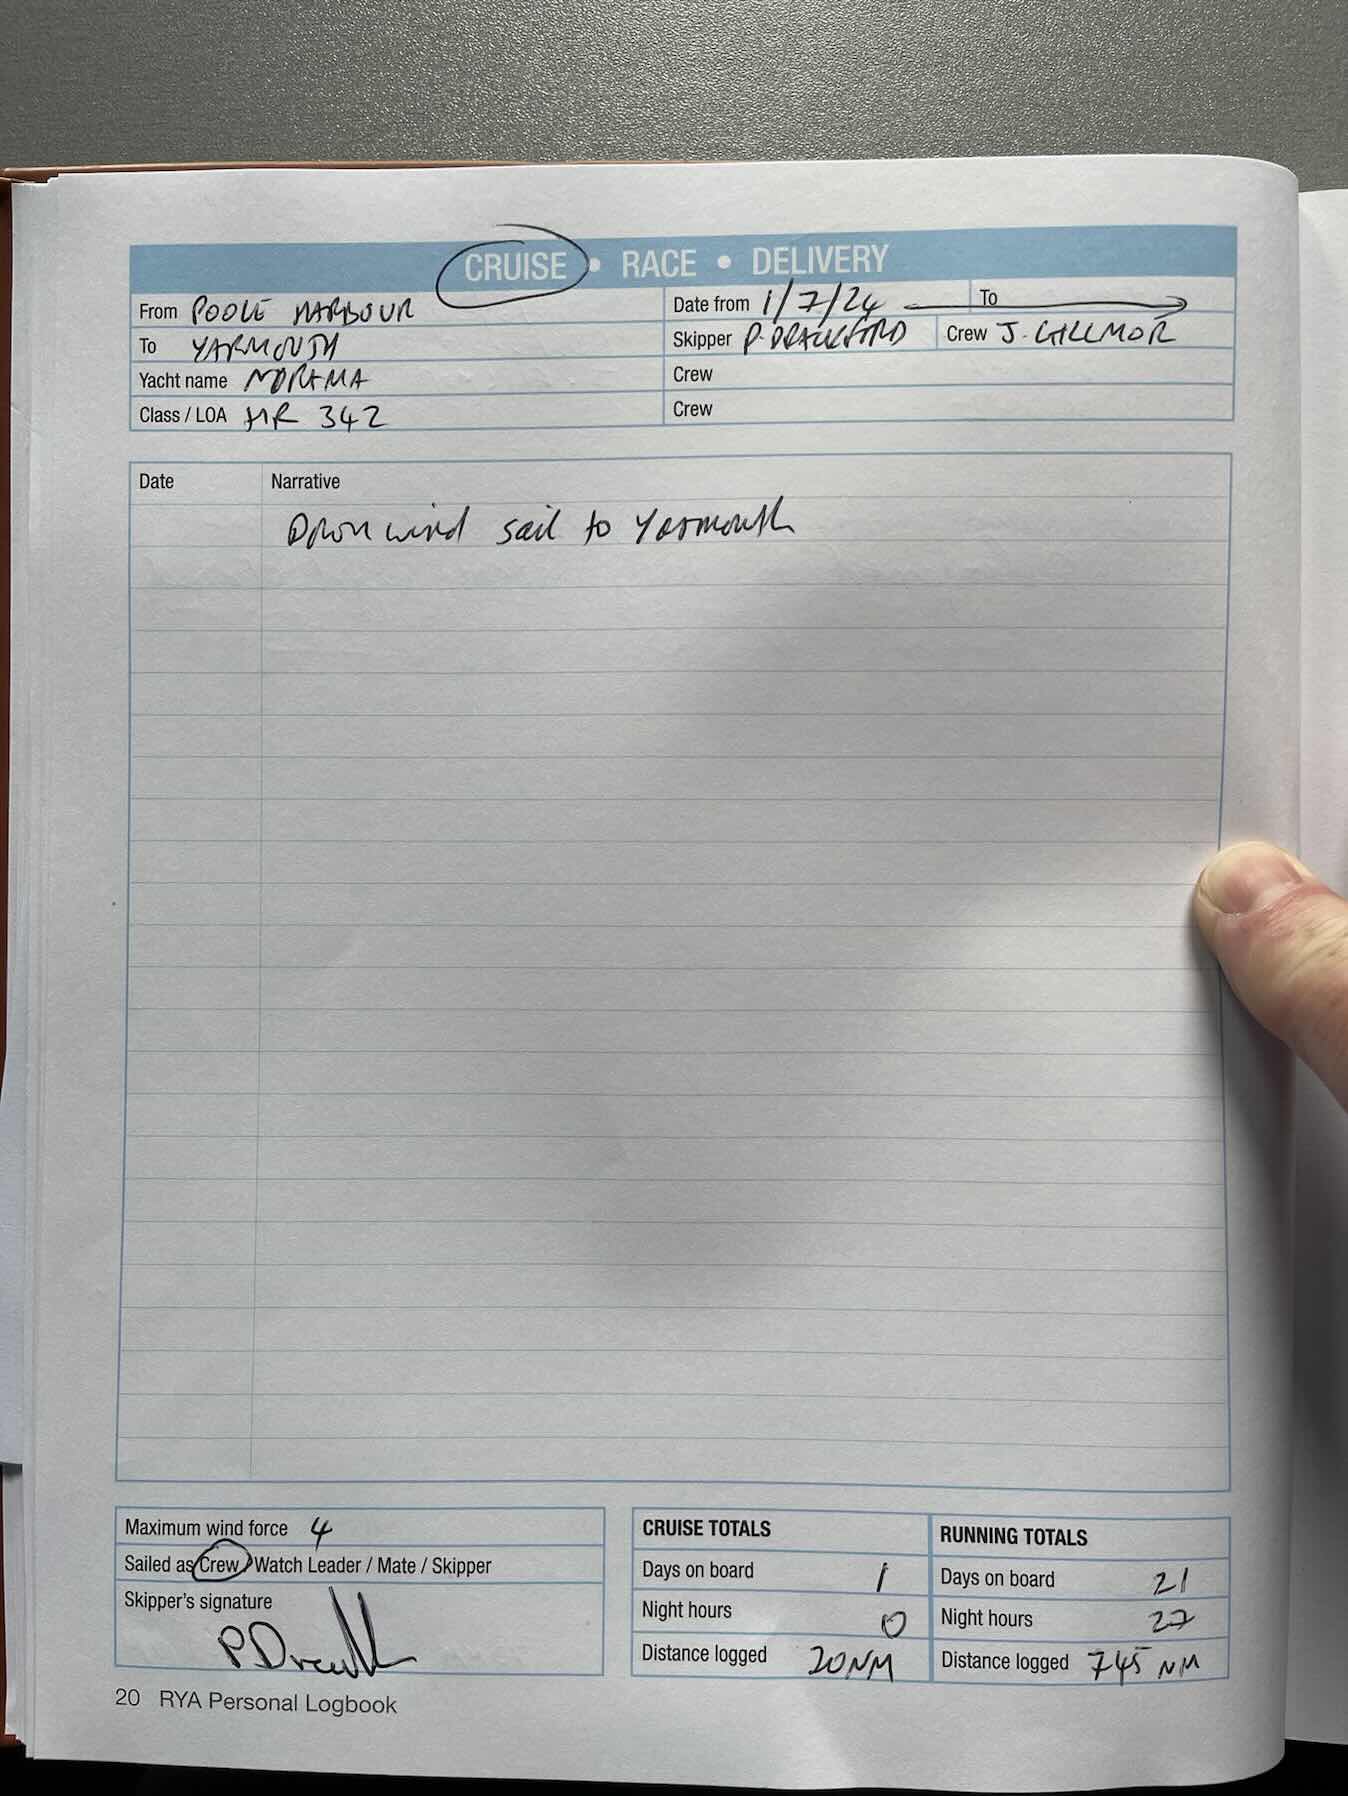 CRUISE • RACE • DELIVERY
From POOLE HARBOUR
Date from 1/7/24 To
To YARMOUTH
Skipper P. Crew J. GILLMOR
Yacht name
Crew
Class / LOA HR 342
Crew
Date Narrative
Down wind sail to Yarmouth
Maximum wind force 4
Sailed as Crew / Watch Leader / Mate / Skipper
Skipper's signature
CRUISE TOTALS
Days on board 1
Night hours 0
Distance logged 20NM
RUNNING TOTALS
Days on board 21
Night hours 27
Distance logged 745 NM
20 RYA Personal Logbook